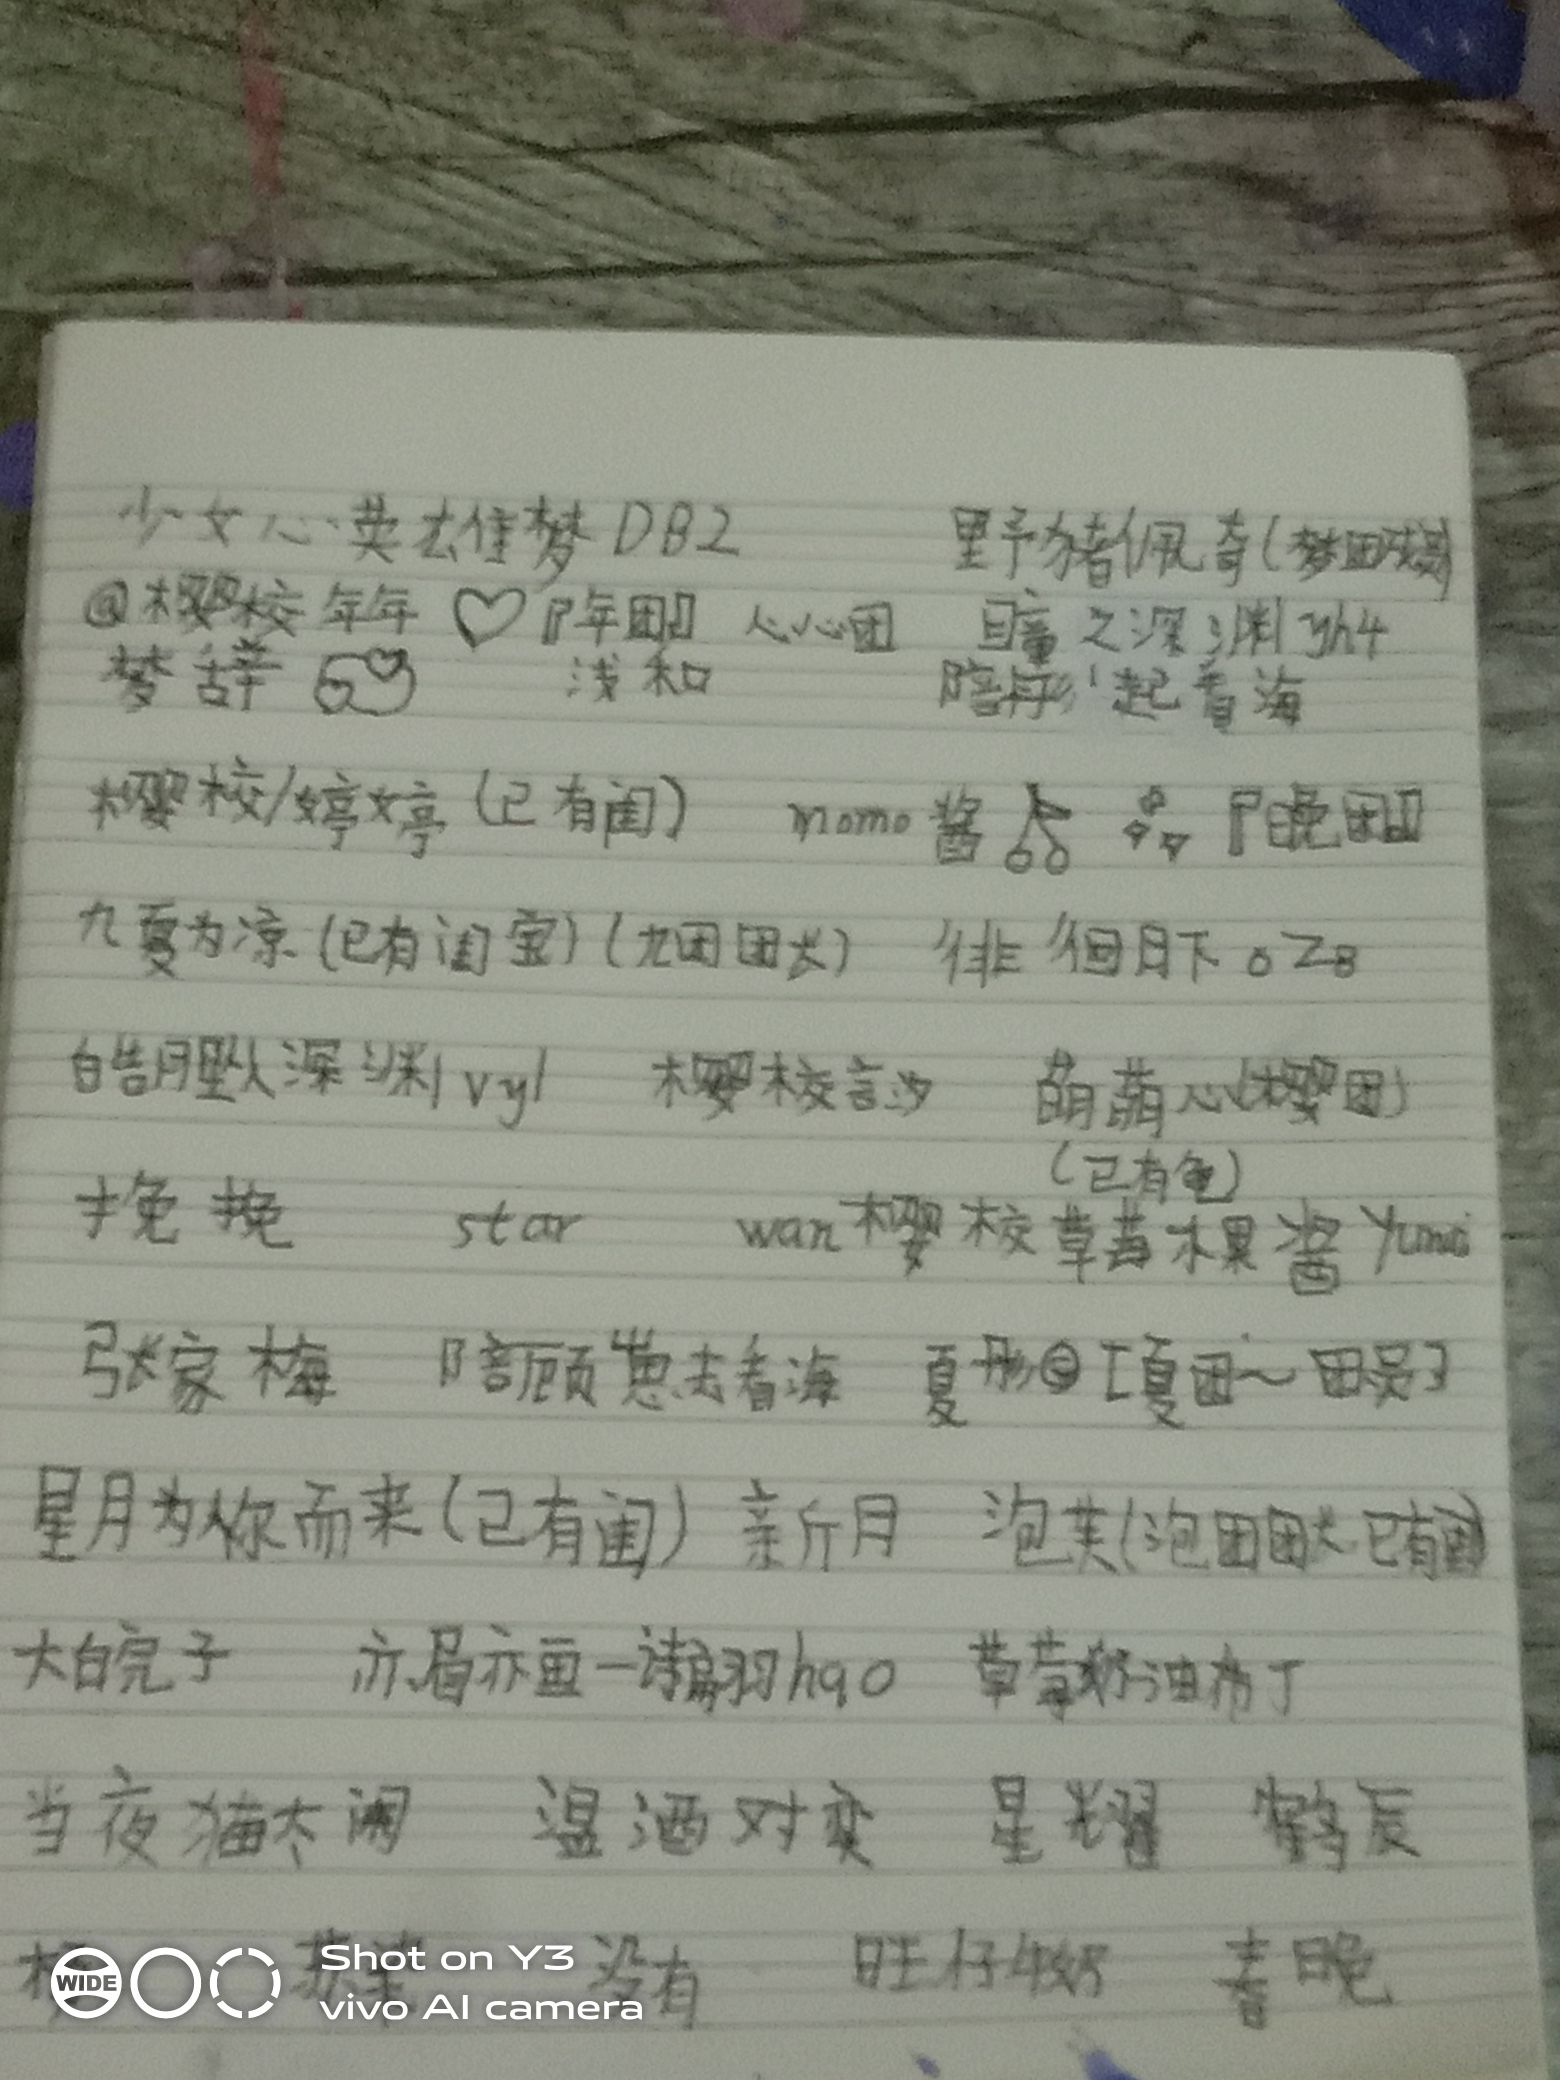 少女心英雄梦DB2 野猪佩奇(梦团成员)
@樱校年年♡『年团』 心心团 瞳之深渊yh4
梦辞 浅和 陪你一起看海
樱校/婷婷(已有闺) momo酱 『晚团』
九夏为凉(已有闺宝)(九团团长) 徘徊月下oZB
皓月默深渊vyl 樱校言汐 萌萌心(樱团)
(已有龟)
挽挽 star wan樱校草莓果酱Yumi
张家梅 陪顾崽去看海 夏彤[夏团～团员]
星月为你而来(已有闺) 新月 泡芙(泡团团长.已有闺)
大白兔子 亦眉亦画一诗翩羽hqo 草莓奶油布丁
当夜猫太闹 温酒对弈 星耀 鹤辰
没有 旺仔牛奶 春晚
WIDE Shot on Y3
vivo AI camera